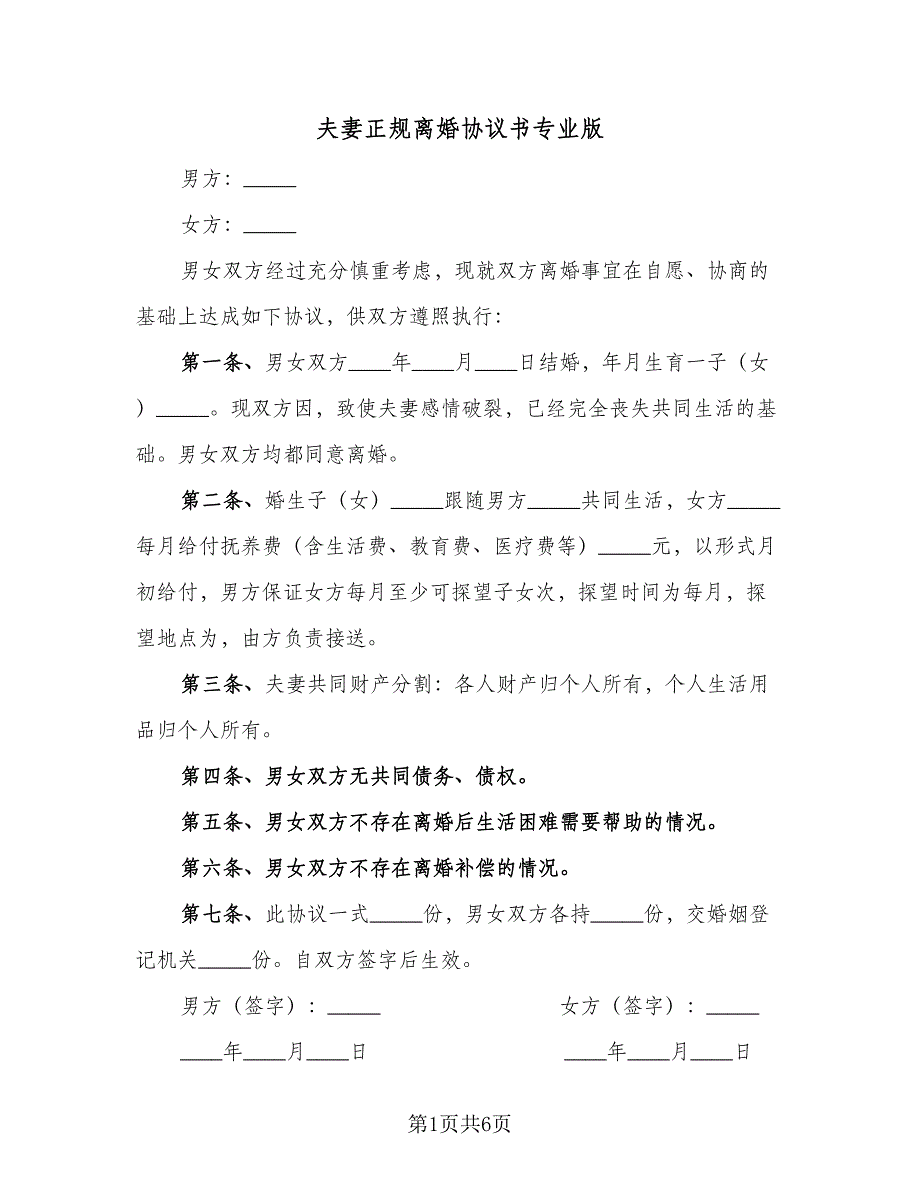 夫妻正规离婚协议书专业版
男方：_____
女方：_____
男女双方经过充分慎重考虑，现就双方离婚事宜在自愿、协商的
基础上达成如下协议，供双方遵照执行：
第一条、男女双方____年____月____日结婚，年月生育一子（女
）_____。现双方因，致使夫妻感情破裂，已经完全丧失共同生活的基
础。男女双方均都同意离婚。
第二条、婚生子（女）_____跟随男方_____共同生活，女方_____
每月给付抚养费（含生活费、教育费、医疗费等）_____元，以形式月
初给付，男方保证女方每月至少可探望子女次，探望时间为每月，探
望地点为，由方负责接送。
第三条、夫妻共同财产分割：各人财产归个人所有，个人生活用
品归个人所有。
第四条、男女双方无共同债务、债权。
第五条、男女双方不存在离婚后生活困难需要帮助的情况。
第六条、男女双方不存在离婚补偿的情况。
第七条、此协议一式_____份，男女双方各持_____份，交婚姻登
记机关_____份。自双方签字后生效。
男方（签字）：_____ 女方（签字）：_____
____年____月____日 ____年____月____日
第1页共6页